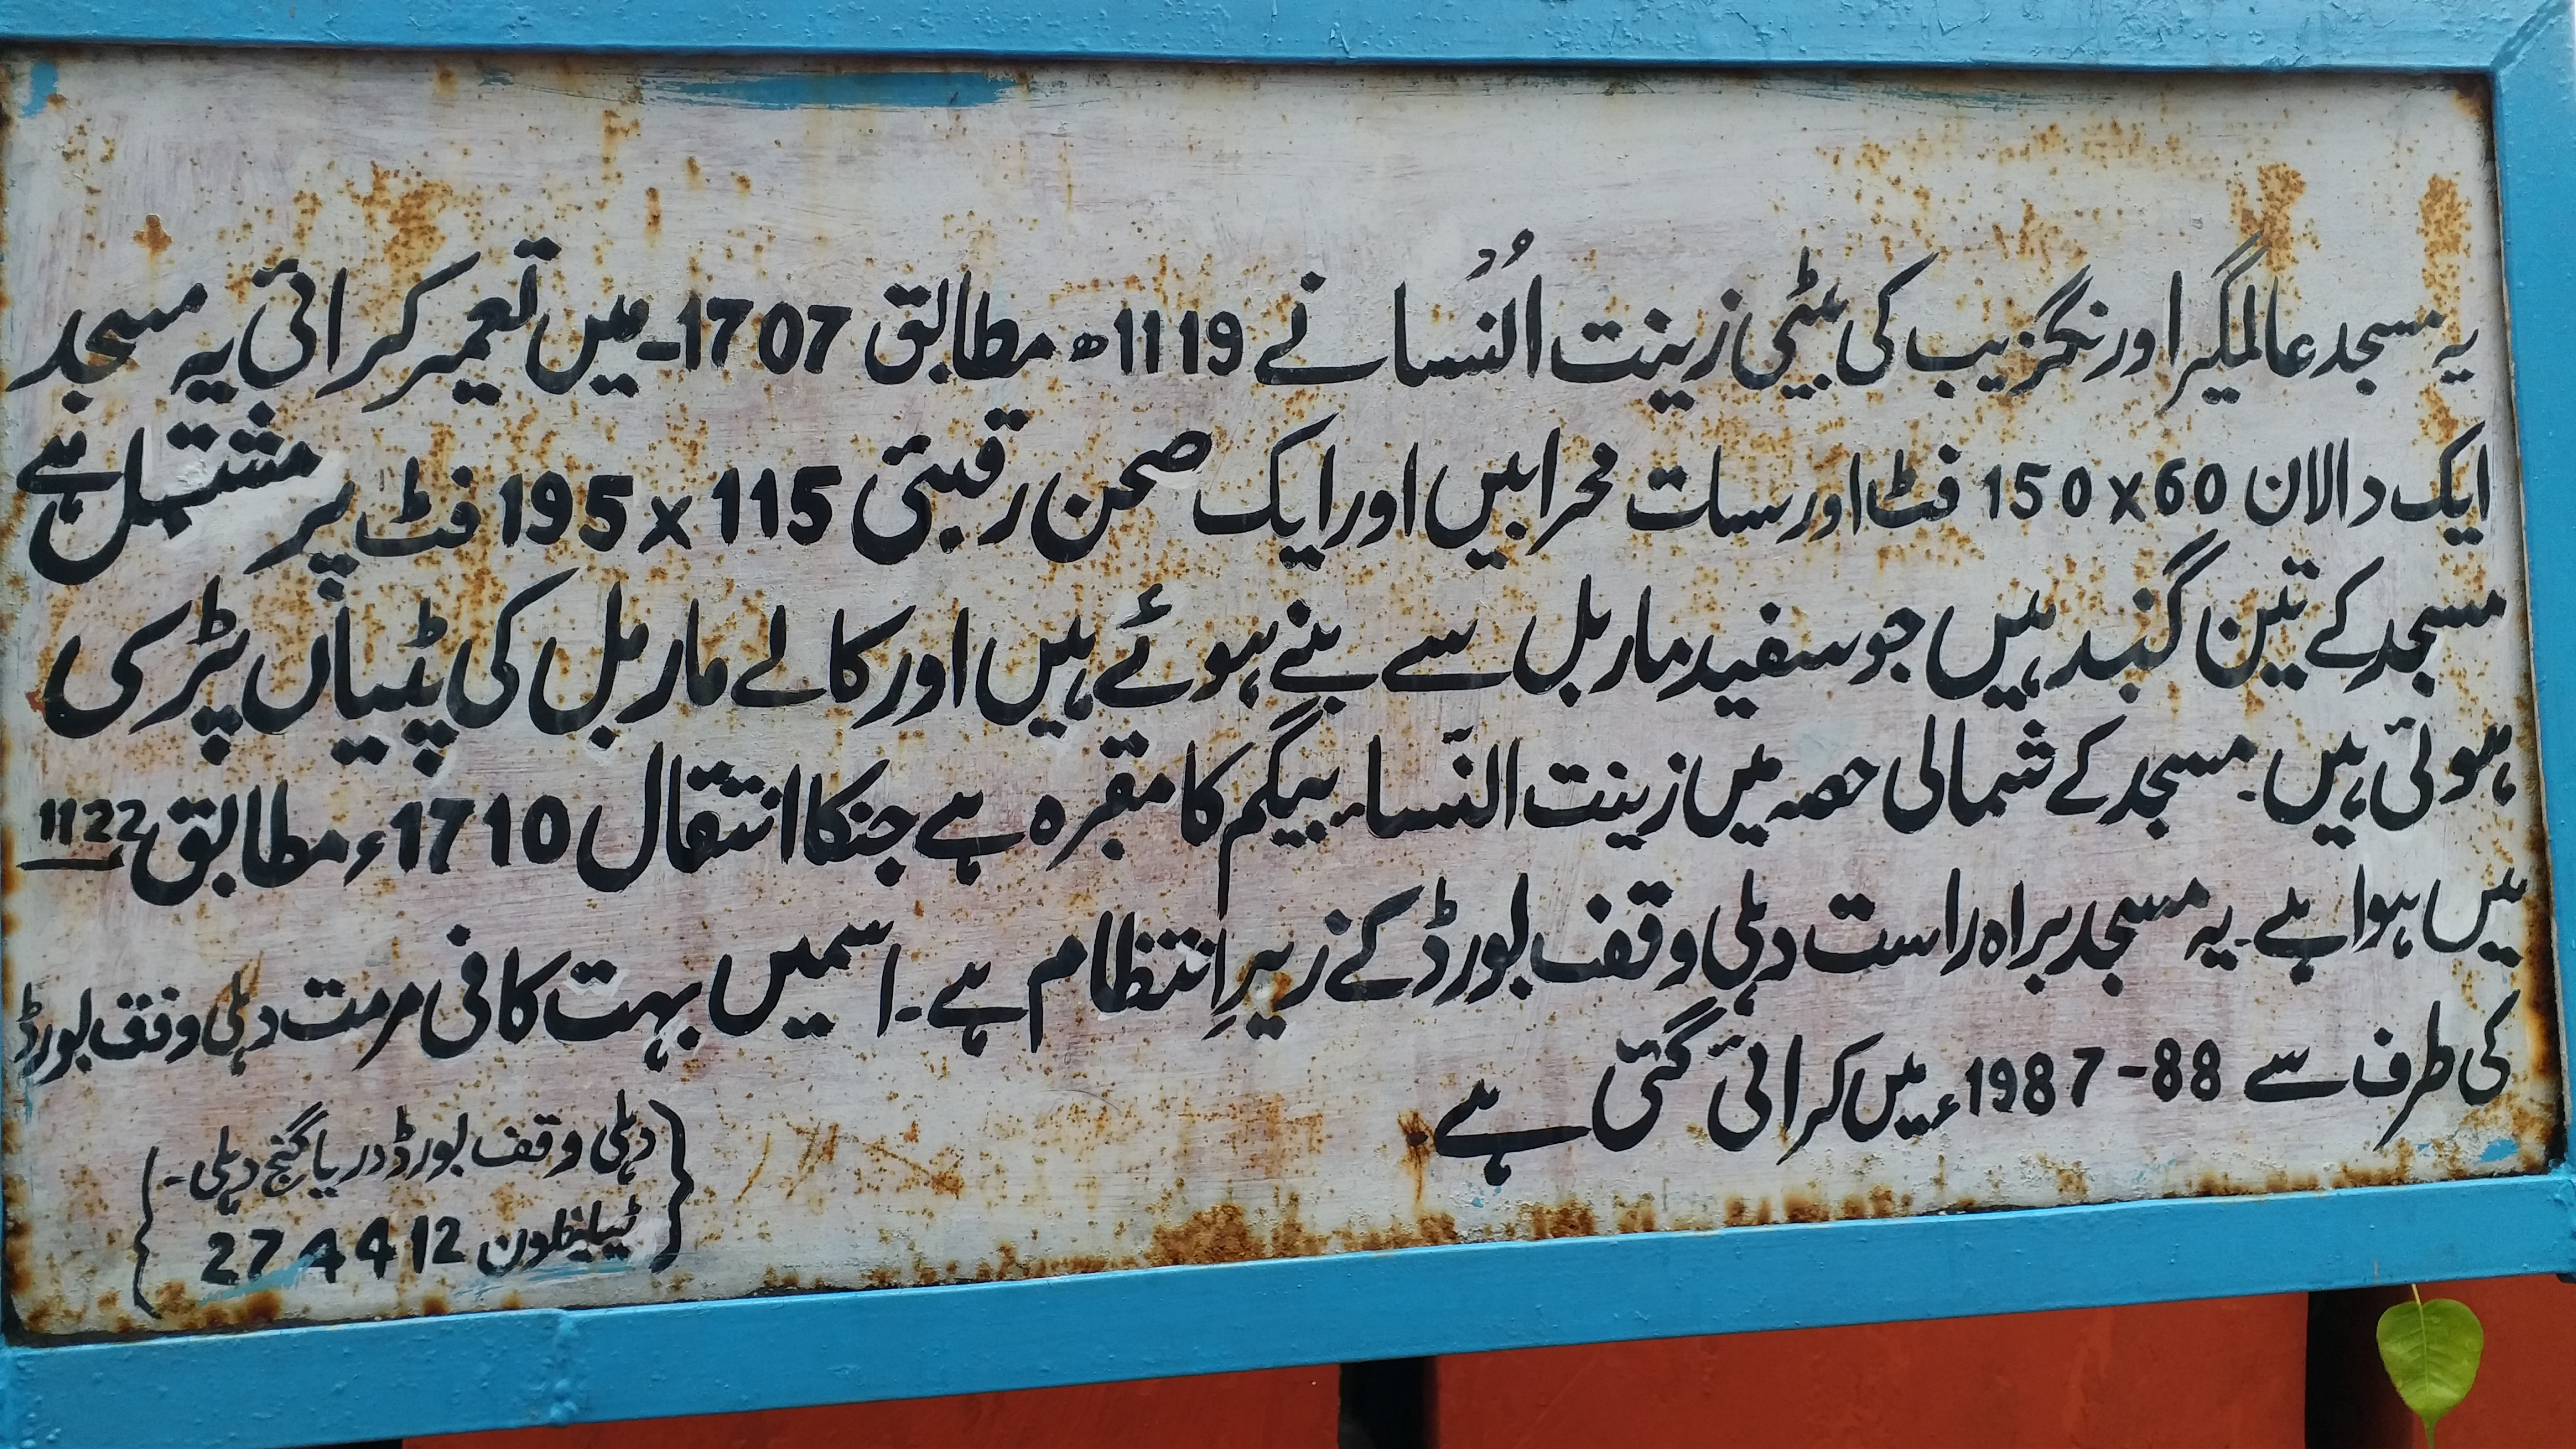 یہ مسجد عالمگیر اورنگزیب کی بیٹی زینت النُسا نے 1119ھ مطابق 1707ـ میں تعمیر کرائی یہ مسجد
ایک دالان 60 x 150 فٹ اور سات محرابیں اور ایک صحن رقبئی 115 x 195 فٹ پر مشتمل ہے
مسجد کے تین گنبد ہیں جو سفید ماربل سے بنے ہوئے ہیں اور کالے ماربل کی پٹیاں پڑی
ہوئی ہیں۔ مسجد کے شمالی حصہ میں زینت النّساء بیگم کا مقبرہ ہے جنکا انتقال 1710ء مطابق 1122
میں ہوا ہے۔ یہ مسجد براہ راست دہلی وقف بورڈ کے زیرِ انتظام ہے۔ اسمیں بہت کافی مرمت دہلی وقف بورڈ
کی طرف سے 88-1987ء میں کرائی گئی ہے۔
{دہلی وقف بورڈ دریا گنج دہلی۔
ٹیلیفون 2744412}